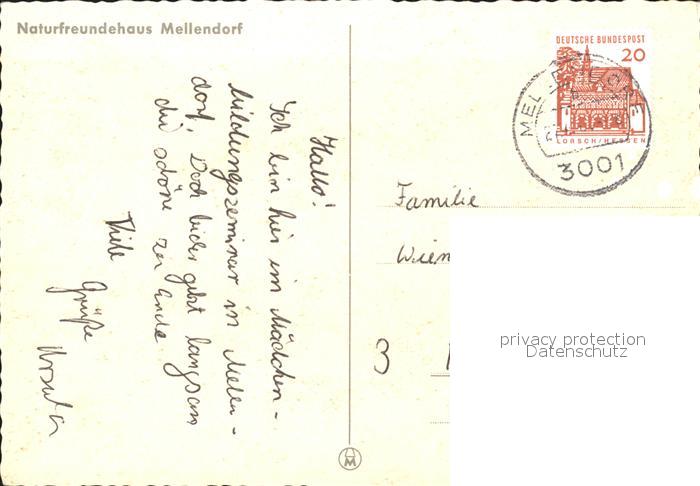 Naturfreundehaus Mellendorf
Hallo!
Ich bin hier im Mädchen-
bildungsseminar in Mellen-
dorf. Doch leider geht langsam
die schöne Zeit zu Ende.
Viele
Grüße
Ursula
DEUTSCHE BUNDESPOST
20
LORSCH/HESSEN
3001
Familie
3
privacy protection
Datenschutz